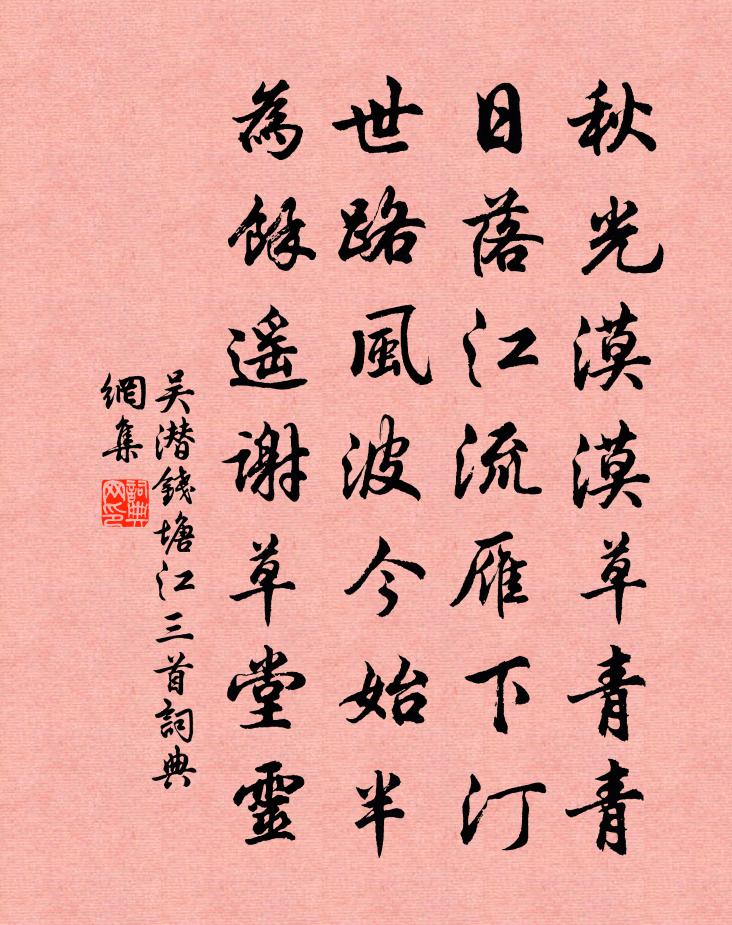 秋光漠漠草青青
日落江流雁下汀
世路風波今始半
為餘遥謝草堂靈
吴潜錢塘江三首詞典
網集
詞典网印